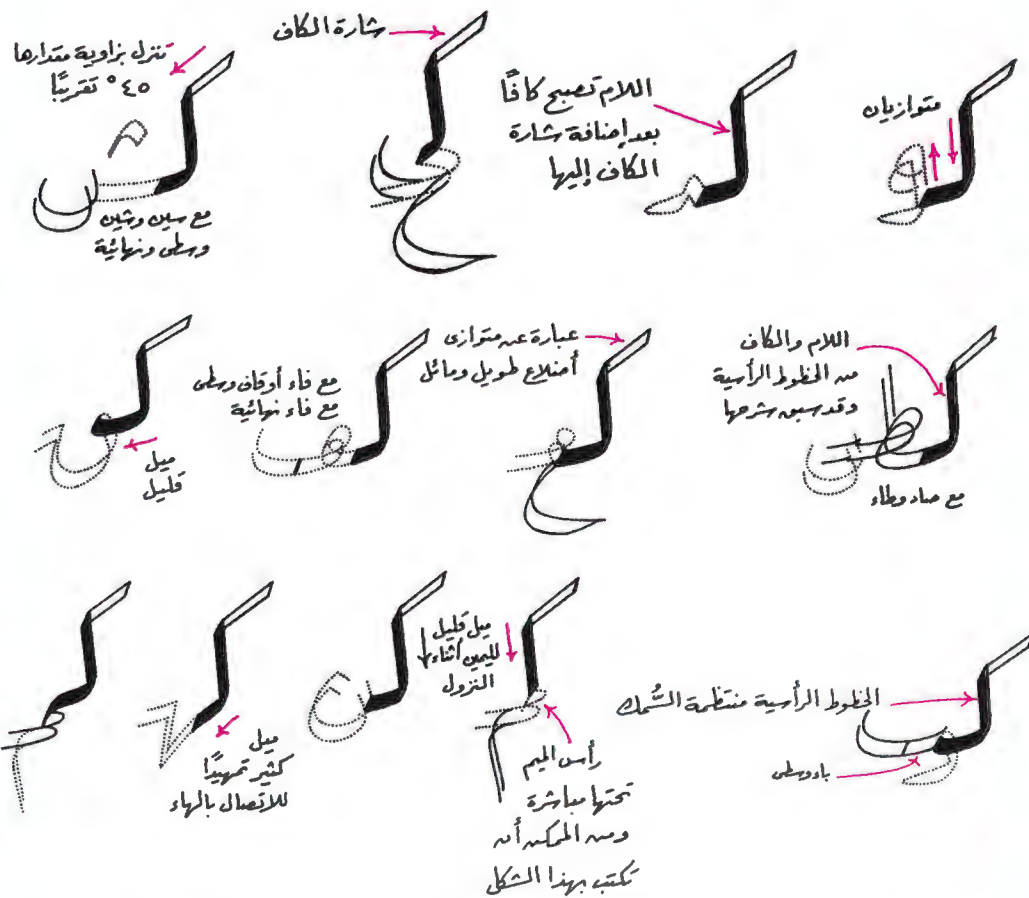 متوازيان
اللام تصبح كافًا
بعد إضافة شارة
الكاف إليها
شارة الكاف
تنزل بزاوية مقدارها
٤٥° تقريبًا
مع سين وشين
وسطى ونهائية
اللام والكاف
من الخطوط الرأسية
وقد سبق شرحها
مع صاد وطاء
عبارة عن متوازى
أضلاع طويل ومائل
مع فاء أوقاف وسطى
مع فاء نهائية
ميل
قليل
الخطوط الرأسية منتظمة السُّمك
باء وسطى
ميل قليل
لليمين أثناء
النزول
رأس الميم
تحتها مباشرة
ومن الممكن أن
تكتب بهذا الشكل
ميل
كثير تمهيدًا
للاتصال بالهاء